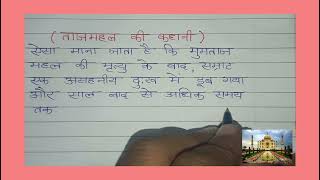 ( ताजमहल की कहानी )
ऐसा माना जाता है कि मुमताज
महल की मृत्यु के बाद, सम्राट
एक असहनीय दुःख में डूब गया
और साल बाद से अधिक समय
तक